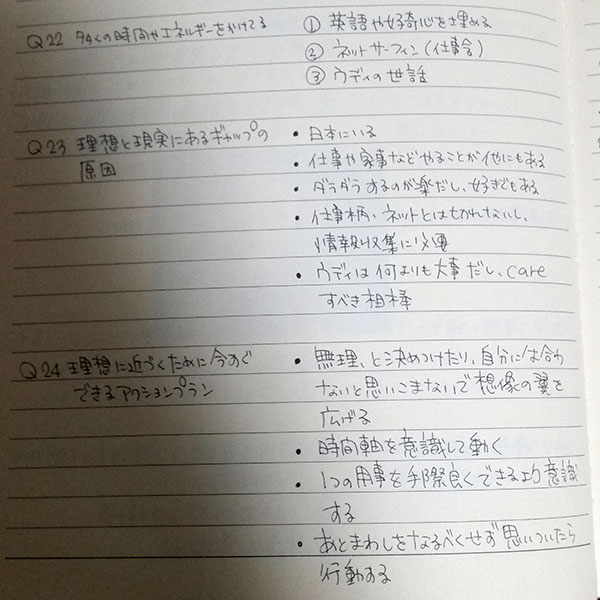 Q22 多くの時間やエネルギーをかけてる
① 英語や好奇心を埋める
② ネットサーフィン(仕事含)
③ ウディの世話
Q23 理想と現実にあるギャップの
原因
• 日本にいる
• 仕事や家事などやることが他にもある
• ダラダラするのが楽だし、好きでもある
• 仕事柄、ネットとはきれないし、
情報収集に必要
• ウディは何よりも大事だし、care
すべき相棒
Q24 理想に近づくために今すぐ
できるアクションプラン
• 無理、と決めつけたり、自分には合わ
ないと思いこまないで想像の翼を
広げる
• 時間軸を意識して動く
• 1つの用事を手際良くできるよう意識
する
• あとまわしをなるべくせず思いついたら
行動する